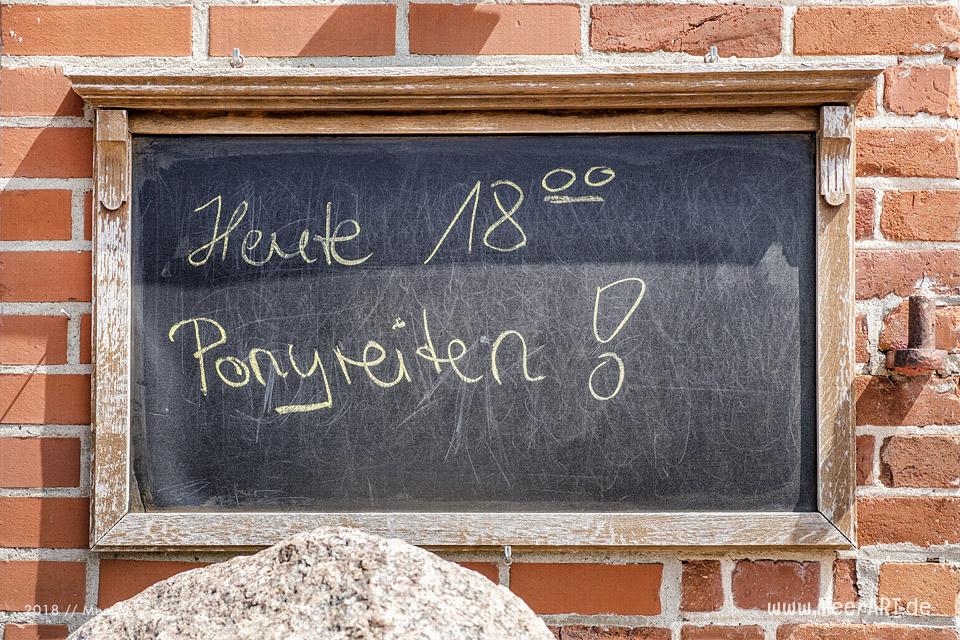 Heute 18⁰⁰
Ponyreiten!
2018 // MeerART
www.MeerART.de